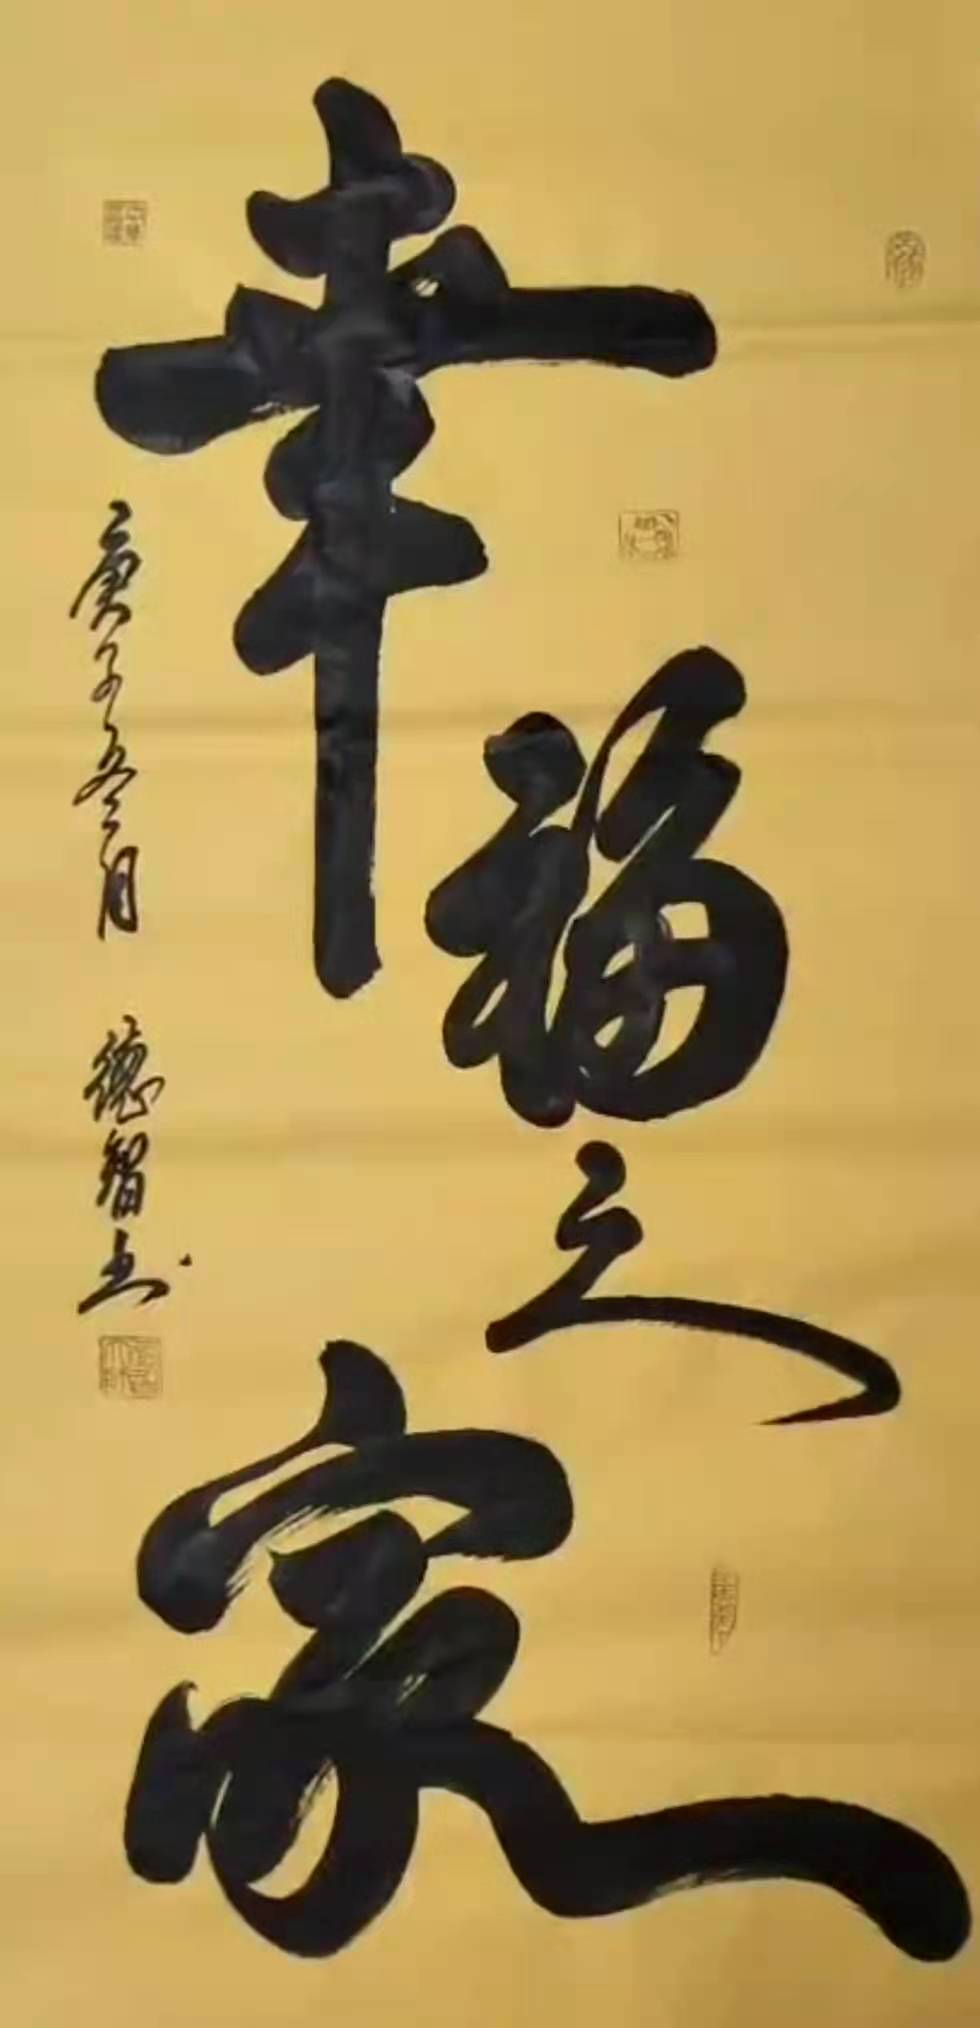 幸福之家
庚子冬月 德智书